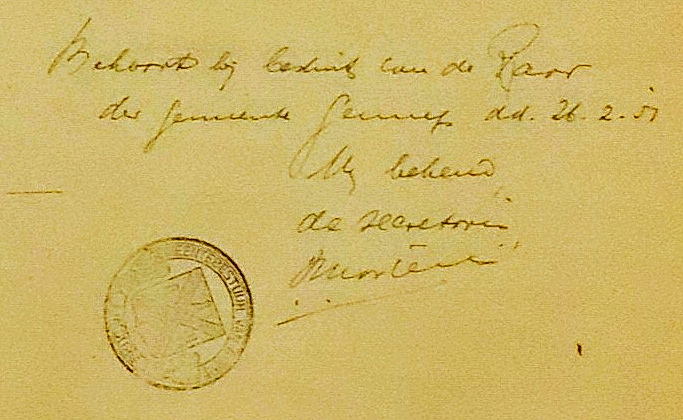 Behoort bij besluit van de Raad
der gemeente Gennep dd. 26.2.51
Mij bekend,
de secretaris,